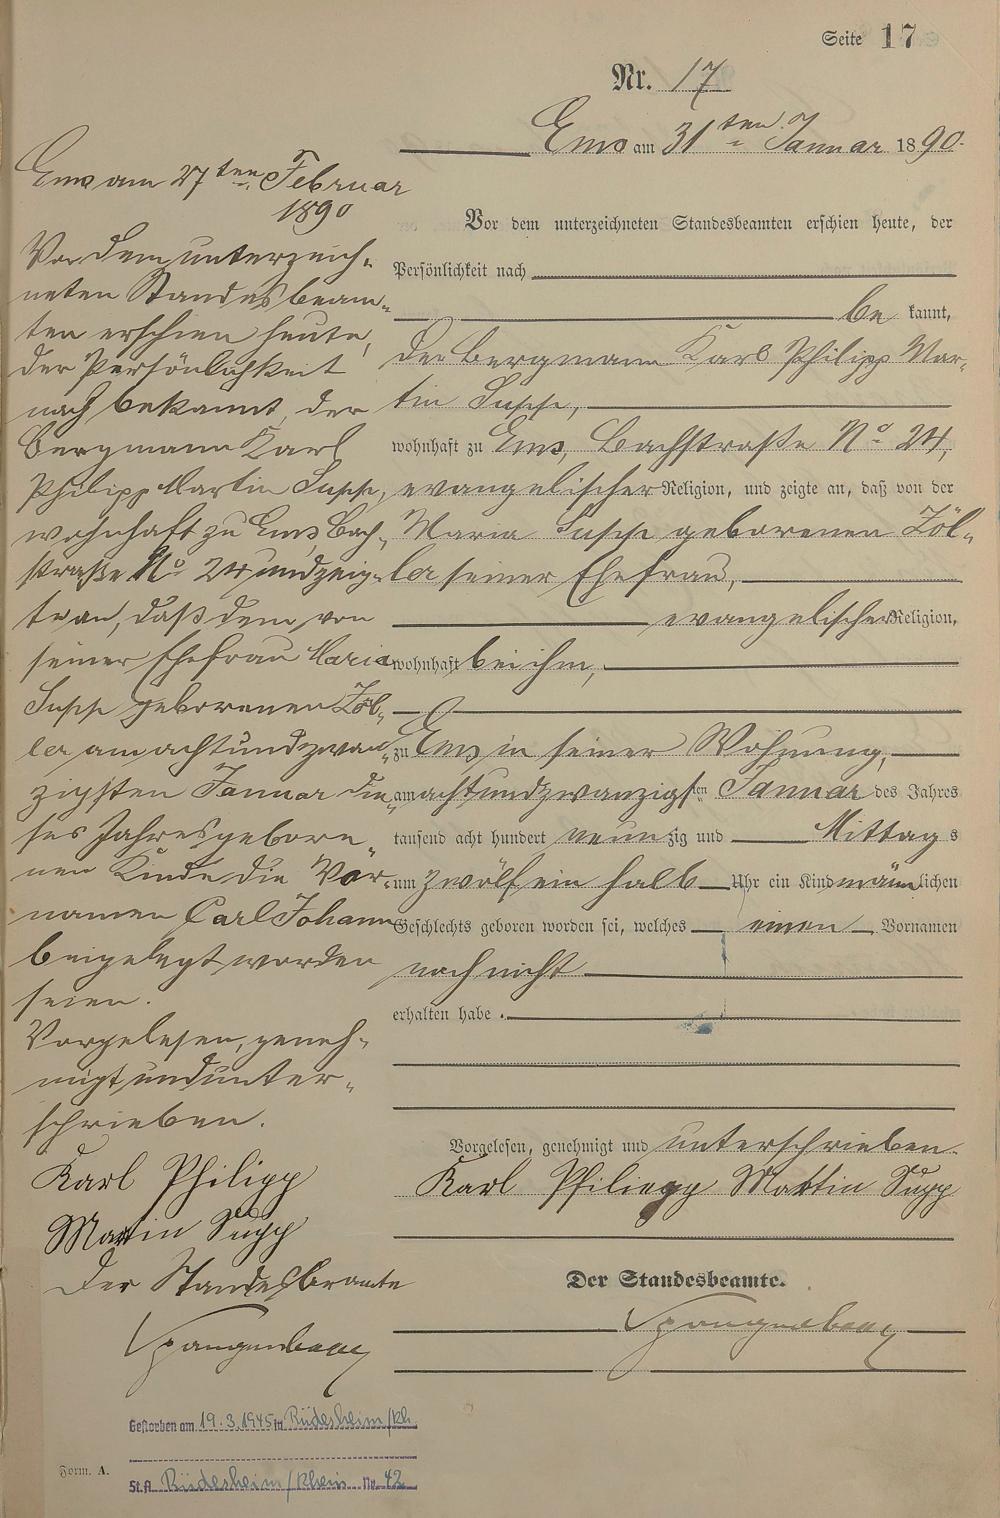 Seite 17
Nr. 17
Ems am 31ten Januar 1890.
Vor dem unterzeichneten Standesbeamten erschien heute, der
Persönlichkeit nach
be kannt,
der Bergmann Karl Philipp Mar-
tin Supp,
wohnhaft zu Ems, Bachstraße No 24,
evangelischer Religion, und zeigte an, daß von der
Maria Supp geborenen Zöl-
ler seiner Ehefrau,
evangelischer Religion,
wohnhaft bei ihm,
zu Ems in seiner Wohnung,
am achtundzwanzigsten Januar des Jahres
tausend acht hundert neunzig und Mittags
um zwölf ein halb Uhr ein Kind männlichen
Geschlechts geboren worden sei, welches einen Vornamen
noch nicht
erhalten habe.
Vorgelesen, genehmigt und unterschrieben.
Karl Philipp Martin Supp
Der Standesbeamte.
Spangenberg
Ems am 27ten Februar
1890
Vor dem unterzeich-
neten Standesbeam-
ten erschien heute,
der Persönlichkeit
nach bekannt, der
Bergmann Karl
Philipp Martin Supp,
wohnhaft zu Ems Bach-
straße No 24 und zeig-
te an, daß dem von
seiner Ehefrau Maria
Supp geborenen Zöl-
ler am achtundzwan-
zigsten Januar die-
ses Jahres gebore-
nen Kinde die Vor-
namen Carl Johann
beigelegt worden
seien.
Vorgelesen, geneh-
migt und unter-
schrieben.
Karl Philipp
Martin Supp
Der Standesbeamte
Spangenberg
Gestorben am 19.3.1945 in Rüdesheim/Rh.
St.A. Rüdesheim/Rhein Nr. 42
Form. A.